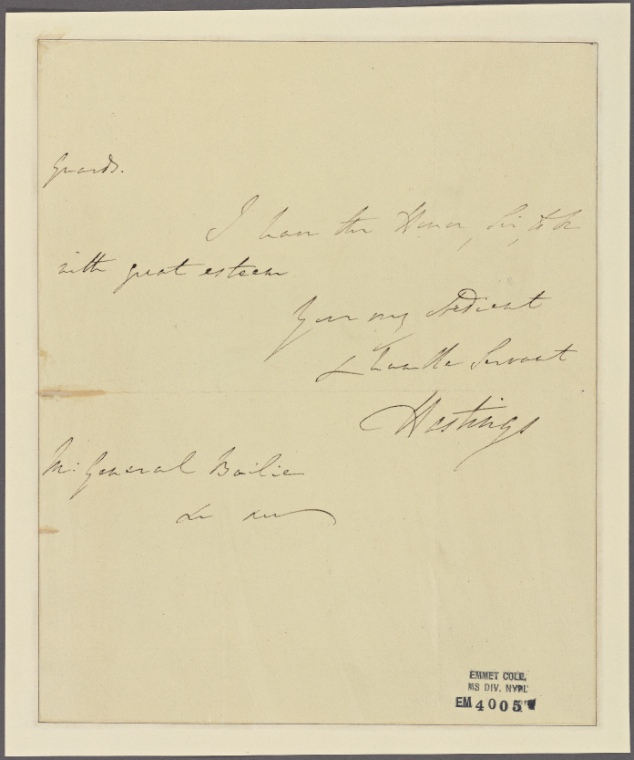 Guards.
I have the Honor, Sir, to be
with great esteem
Your very obedient
& humble Servant
Hastings
M: General Bailie
&c &c
EMMET COLL.
MS DIV. NYPL
EM 4005